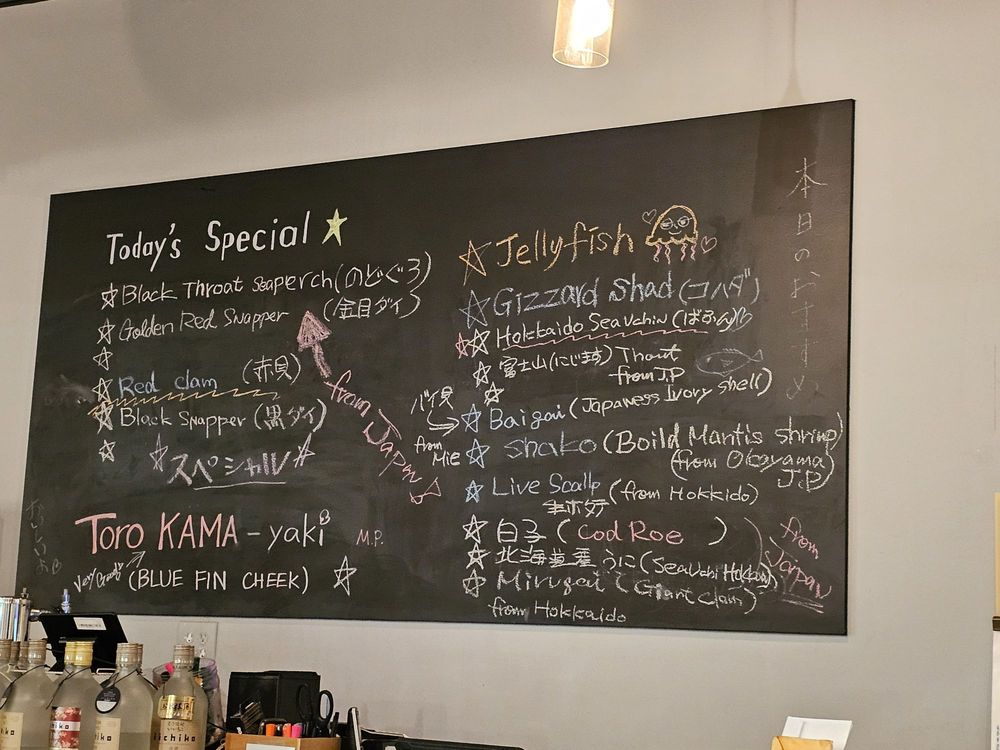 Today's Special
Black Throat Seaperch (のどぐろ)
Golden Red Snapper (金目ダイ)
Red clam (赤貝)
Black Snapper (黒ダイ)
スペシャル
from Japan
Toro KAMA-yaki M.P.
(BLUE FIN CHEEK)
Jellyfish
Gizzard Shad (コハダ)
Hokkaido Sea Uchin (ばふん)
富士山(にじます) Thout
from J.P
バイ貝
from Mie
Baigai (Japaness Ivory shell)
Shako (Boild Mantis shrimp)
(from Okayama)
J.P
Live Scallp (from Hokkaido)
白子 (Cod Roe)
北海道産 うに (Sea Uchi Hokkaido)
Mirugai (Giant clam)
from Hokkaido
from Japan
本日のおすすめ
iichiko